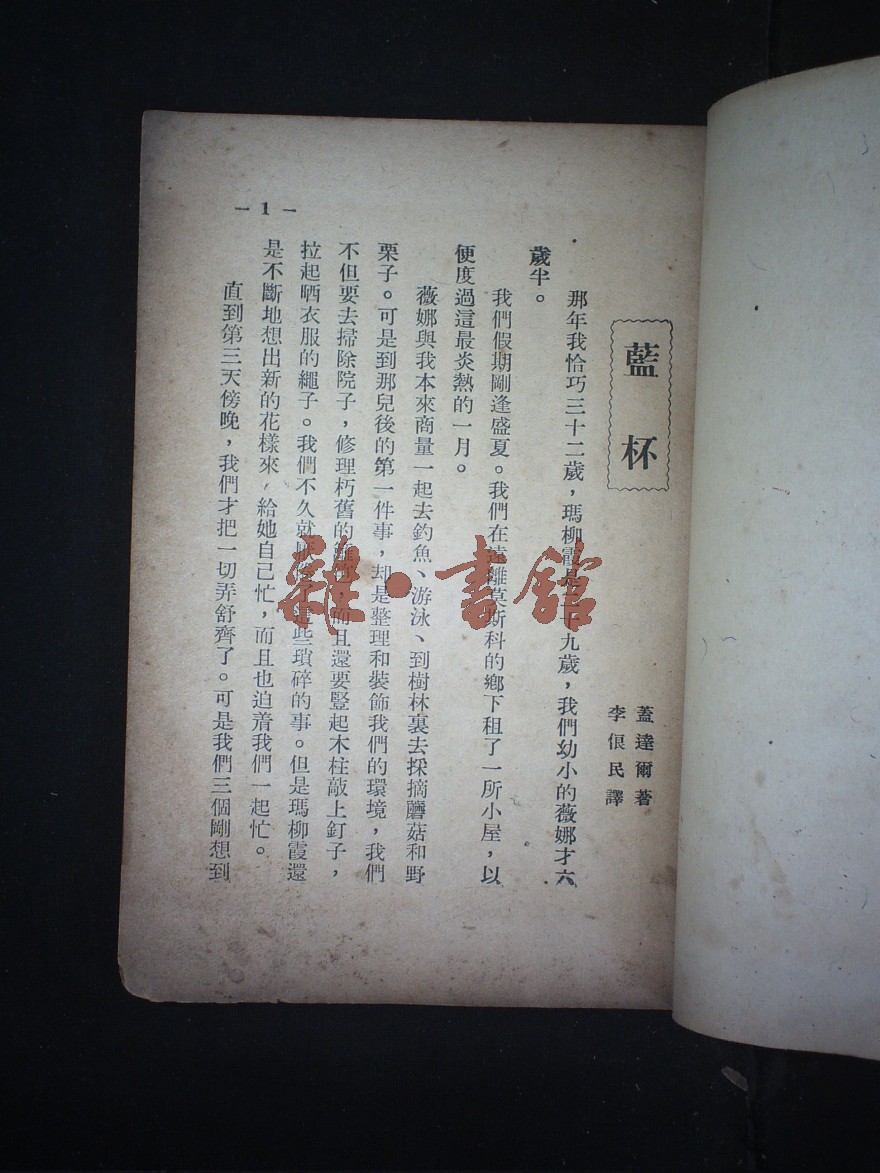 藍杯
蓋達爾著
李俍民譯
那年我恰巧三十二歲，瑪柳霞是二十九歲，我們幼小的薇娜才六
歲半。
我們假期剛逢盛夏。我們在遠離莫斯科的鄉下租了一所小屋，以
便度過這最炎熱的一月。
薇娜與我本來商量一起去釣魚、游泳、到樹林裏去採摘蘑菇和野
栗子。可是到那兒後的第一件事，却是整理和裝飾我們的環境，我們
不但要去掃除院子，修理朽舊的籬笆，而且還要豎起木柱敲上釘子，
拉起晒衣服的繩子。我們不久就了這些瑣碎的事。但是瑪柳霞還
是不斷地想出新的花樣來，給她自己忙，而且也迫着我們一起忙。
直到第三天傍晚，我們才把一切弄舒齊了。可是我們三個剛想到
— 1 —
雜·書館